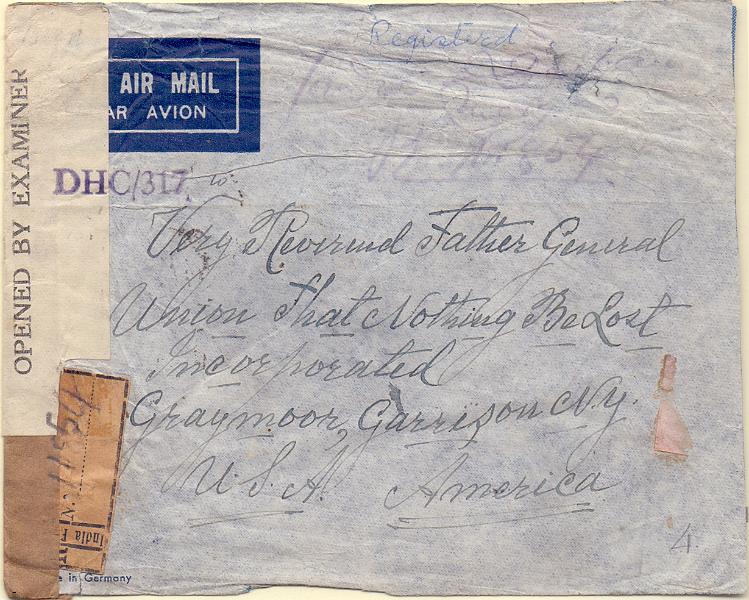 Registerd
AIR MAIL
AR AVION
OPENED BY EXAMINER
DHC/317
to:
Very Reverend Father General
Union That Nothing Be Lost
Incorporated
Graymoor, Garrison N.Y.
U.S.A. America
India
e in Germany
4